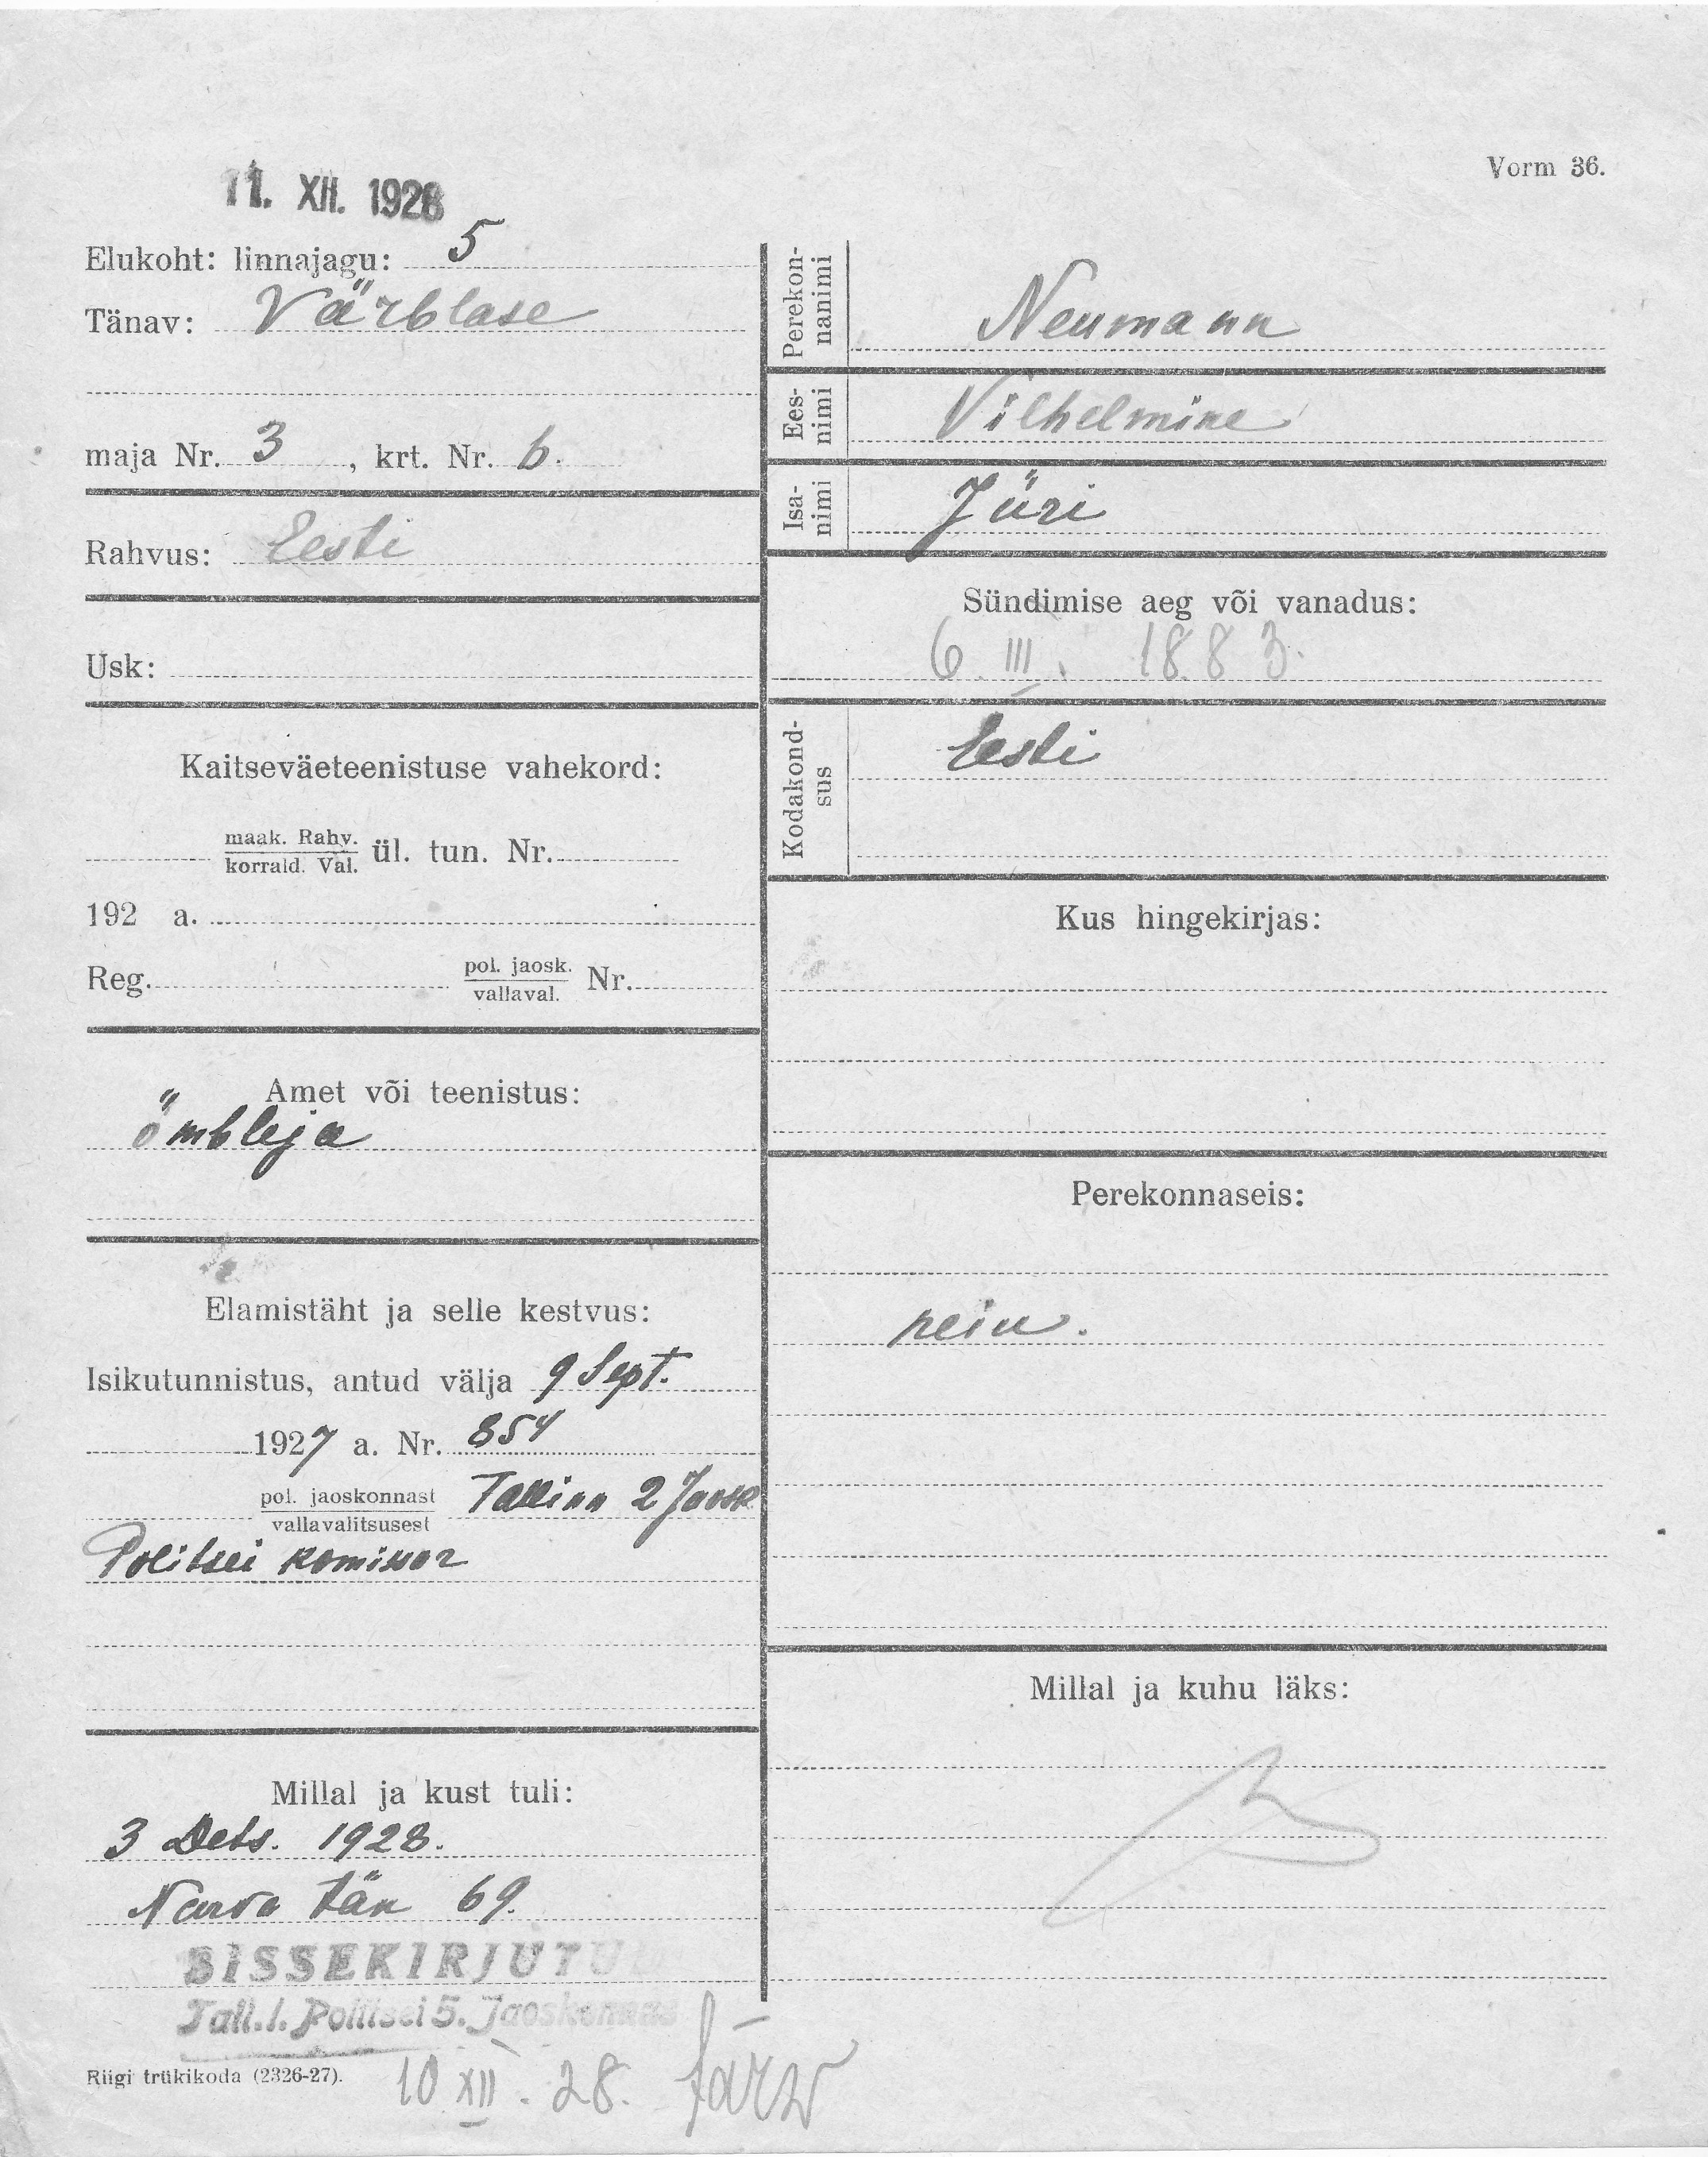 Vorm 36.
11. XII. 1928
Elukoht: linnajagu: 5
Tänav: Värblase
maja Nr. 3, krt. Nr. 6.
Rahvus: Eesti
Usk:
Kaitseväeteenistuse vahekord:
maak. Rahv.
korrald. Val. ül. tun. Nr.
192 a.
Reg. pol. jaosk.
vallaval. Nr.
Amet või teenistus:
õmbleja
Elamistäht ja selle kestvus:
Isikutunnistus, antud välja 9 Sept.
1927 a. Nr. 854
pol. jaoskonnast
vallavalitsusest Tallinn 2 Jaosk
Politsei komissar
Millal ja kust tuli:
3 Dets. 1928.
Narva tän 69.
SISSEKIRJUTU
Tall. l. Politsei 5. Jaoskonnas
Riigi trükikoda (2326-27).
10 XII. 28. Järw
Perekon-
nanimi
Neumann
Ees-
nimi
Vilhelmine
Isa-
nimi
Jüri
Sündimise aeg või vanadus:
6. III. 1883.
Kodakond-
sus
Eesti
Kus hingekirjas:
Perekonnaseis:
neiu.
Millal ja kuhu läks: